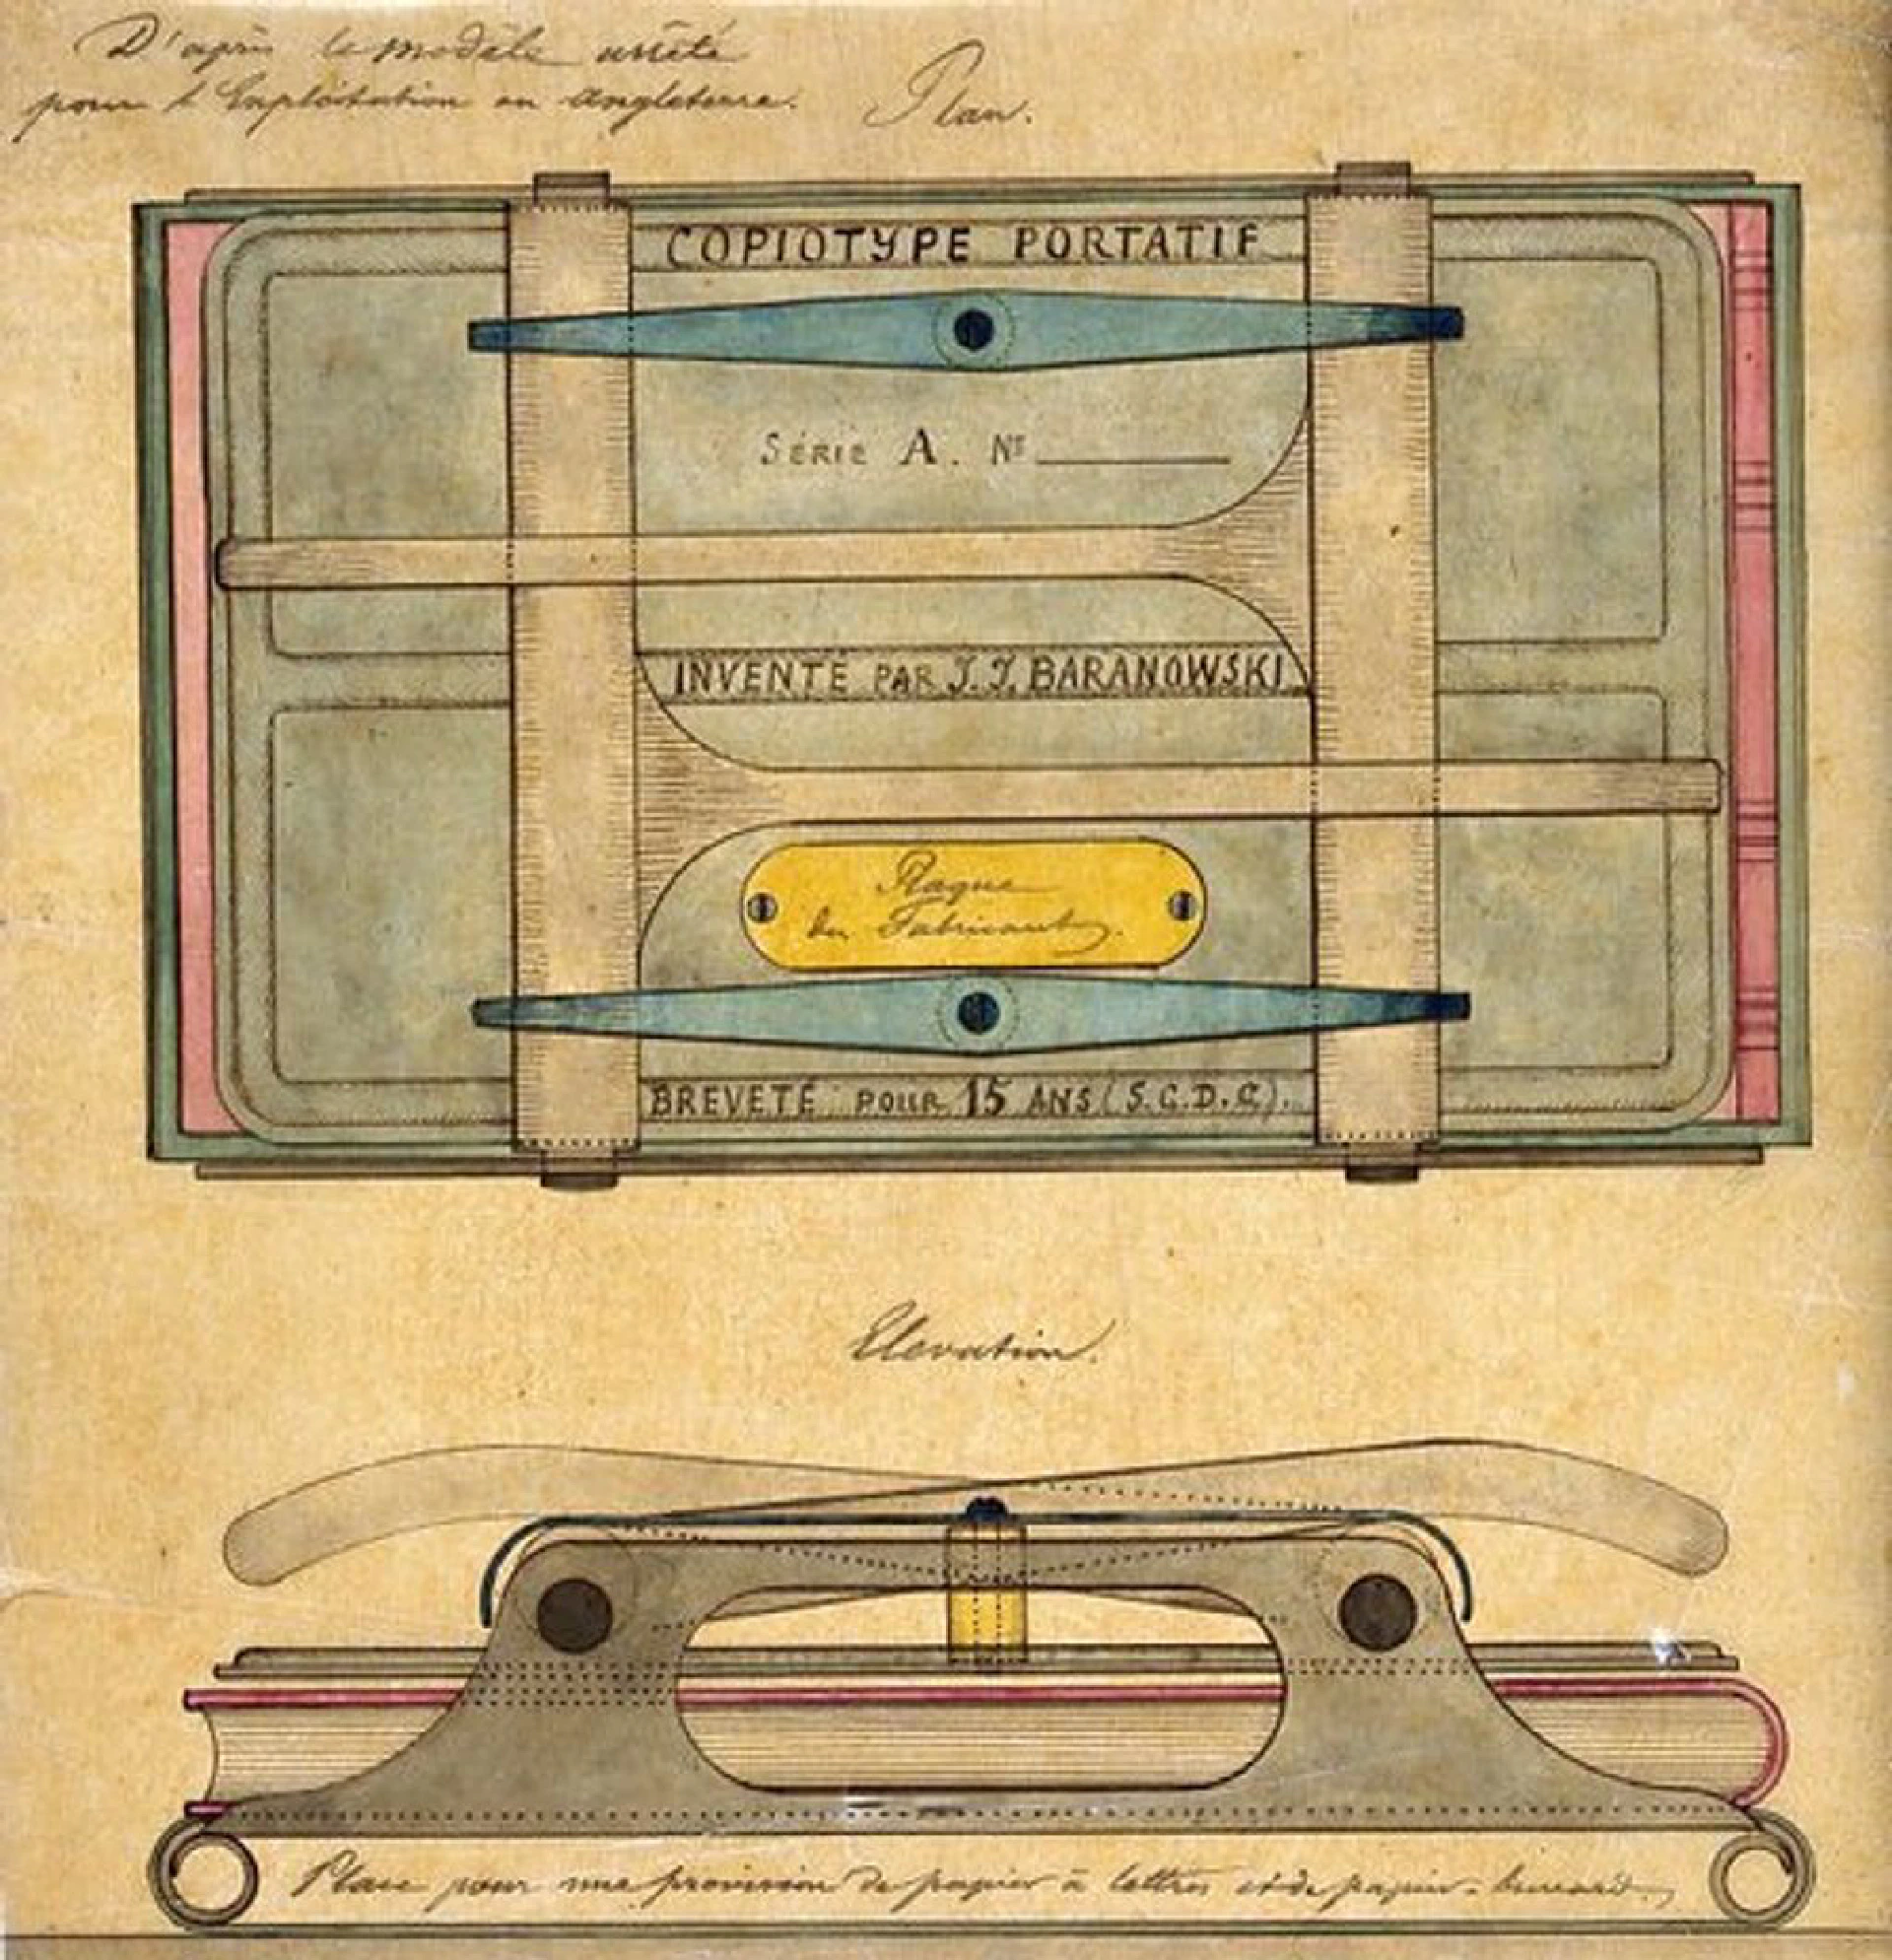 D'après le modèle arrêté
pour l'Exploitation en Angleterre.
Plan.
COPIOTYPE PORTATIF
SÉRIE A. No
INVENTÉ PAR J. J. BARANOWSKI
Plaque
du Fabricant.
BREVETÉ POUR 15 ANS (S.G.D.G).
Elevation.
Place pour une provision de papier à lettres et de papier-buvard.